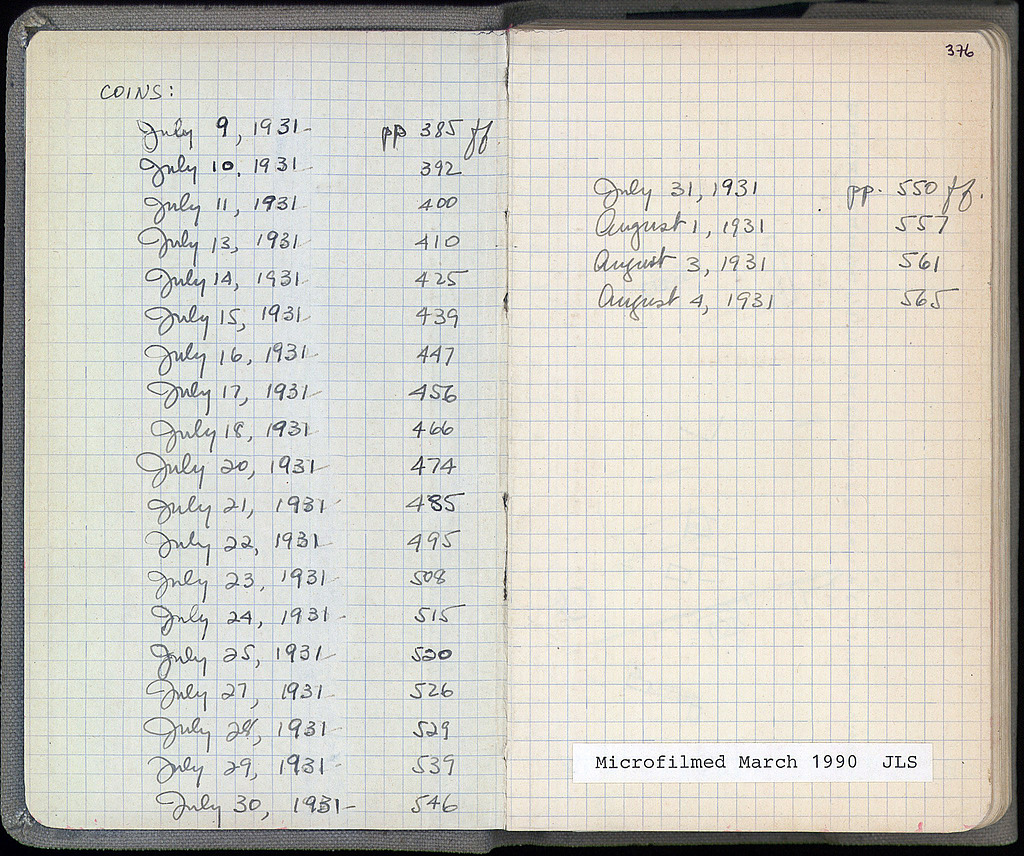 COINS:
July 9, 1931- pp 385 ff.
July 10, 1931- 392
July 11, 1931- 400
July 13, 1931- 410
July 14, 1931- 425
July 15, 1931- 439
July 16, 1931- 447
July 17, 1931- 456
July 18, 1931- 466
July 20, 1931- 474
July 21, 1931- 485
July 22, 1931- 495
July 23, 1931- 508
July 24, 1931- 515
July 25, 1931- 520
July 27, 1931- 526
July 28, 1931- 529
July 29, 1931- 539
July 30, 1931- 546
376
July 31, 1931 pp. 550 ff.
August 1, 1931 557
August 3, 1931 561
August 4, 1931 565
Microfilmed March 1990 JLS